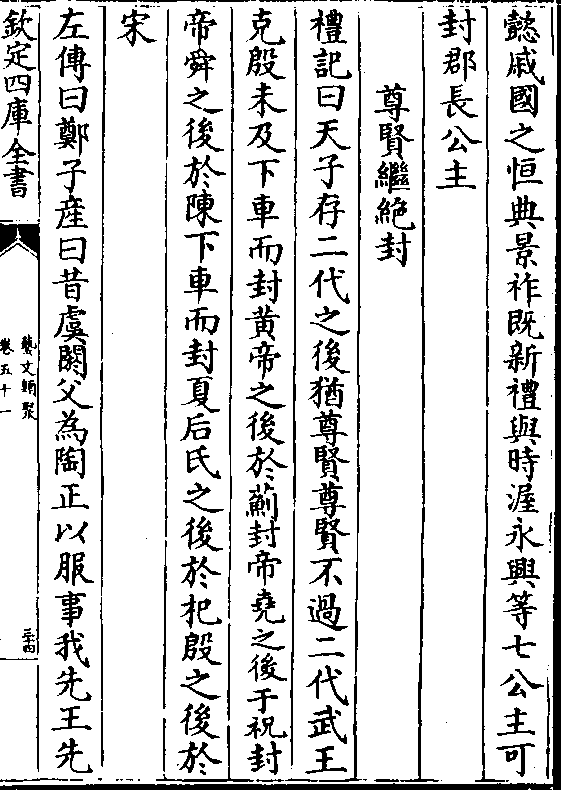 懿戚國之恒典景祚既新禮與時渥永興等七公主可
封郡長公主
尊賢繼絶封
禮記曰天子存二代之後猶尊賢尊賢不過二代武王
克殷未及下車而封黄帝之後於薊封帝堯之後于祝封
帝舜之後於陳下車而封夏后氏之後於把殷之後於
宋
左傳曰鄭子産曰昔虞閼父為陶正以服事我先王先
欽定四庫全書
藝文類聚
卷五十一
三十四